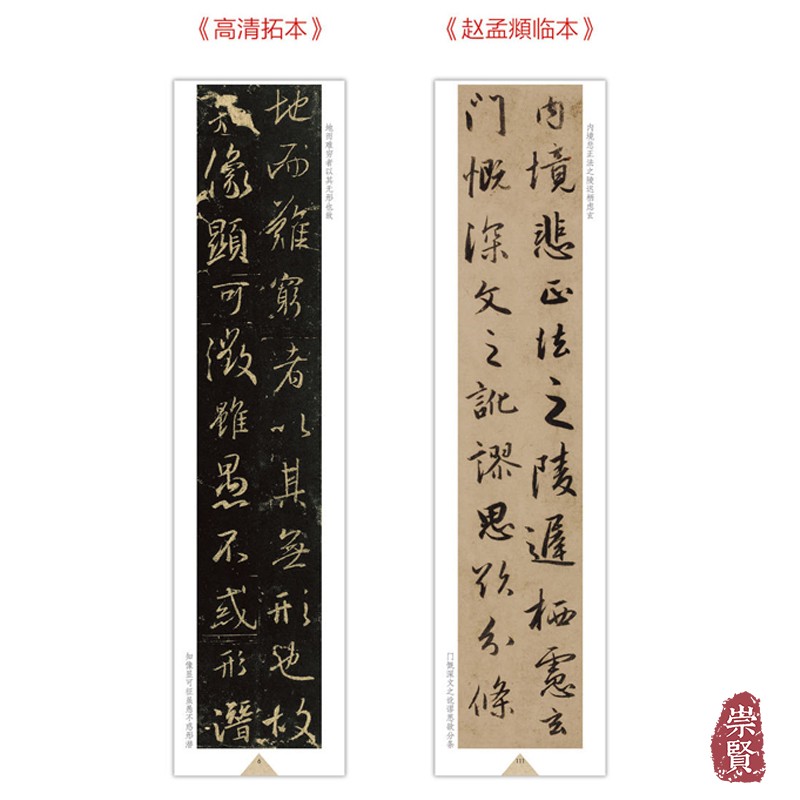 《高清拓本》
地而难穷者以其无形也故
地而難窮者以其無形也故
像顯可徵雖愚不惑形潛
知像显可征虽愚不惑形潜
《赵孟頫临本》
内境悲正法之陵迟栖虑玄
内境悲正法之陵遲栖慮玄
門慨深文之訛謬思欲分條
门慨深文之讹谬思欲分条
111
崇賢